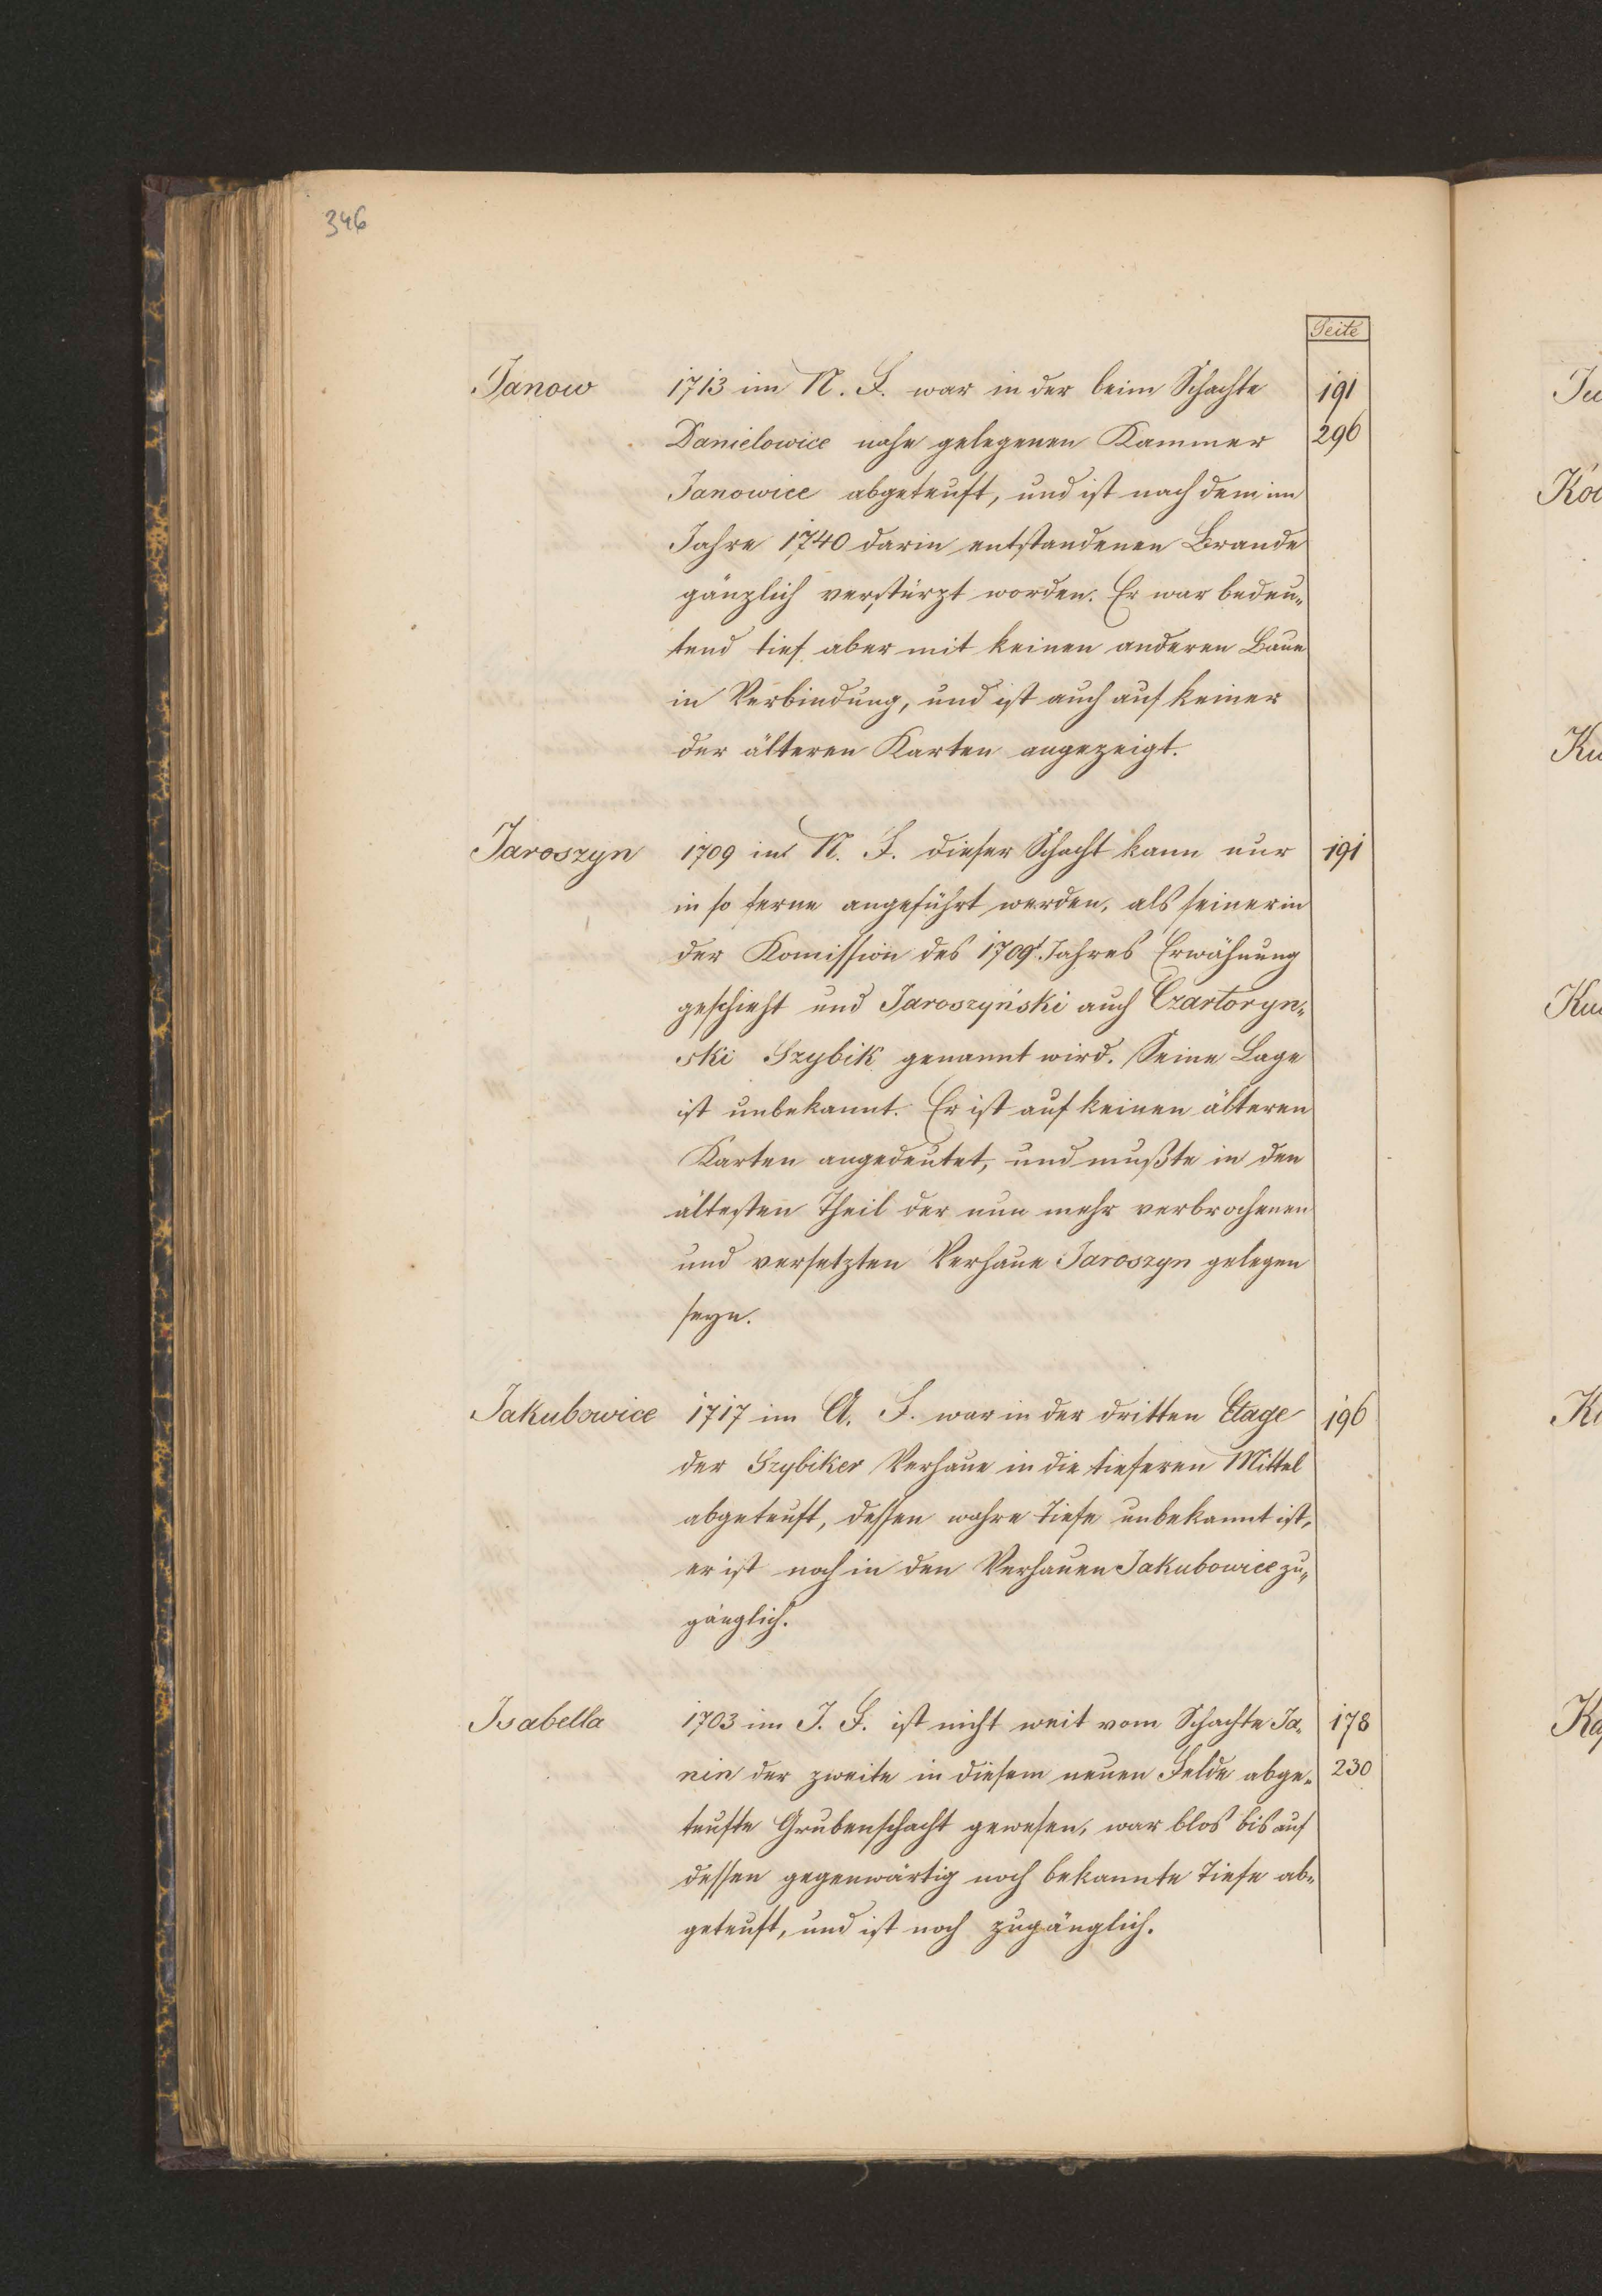 346
Seite
Janow 1713 im N. F. war in der beim Schachte 191
Danielowice nahe gelegenen Kammer 296
Janowice abgeteuft, und ist nach dem im
Jahre 1740 darin entstandenen Brande
gänzlich verstürzt worden. Er war bedeu„
tend tief aber mit keinen anderen Baue
in Verbindung, und ist auch auf keiner
der älteren Karten angezeigt.
Jaroszyn 1709 im N. F. dieser Schacht kann nur 191
in so ferne angeführt werden, als seiner in
der Komission des 1709t Jahres Erwähnung
geschieht und Jaroszyński auch Czartoryn„
ski Szybik genannt wird. Seine Lage
ist unbekannt. Er ist auf keinen älteren
Karten angedeutet, und mußte in den
ältesten Theil der nun mehr verbrochenen
und versetzten Verhaue Jaroszyn gelegen
seyn.
Jakubowice 1717 im A. F. war in der dritten Etage 196
der Szybiker Verhaue in die tieferen Mittel
abgeteuft, dessen wahre Tiefe unbekannt ist,
er ist noch in den Verhauen Jakubowice zu„
gänglich.
Isabella 1703 im J. F. ist nicht weit vom Schachte Ja„ 178
nin der zweite in diesem neuen Felde abge„ 230
teufte Grubenschacht gewesen, war blos bis auf
dessen gegenwärtig noch bekannte Tiefe ab„
geteuft, und ist noch zugänglich.